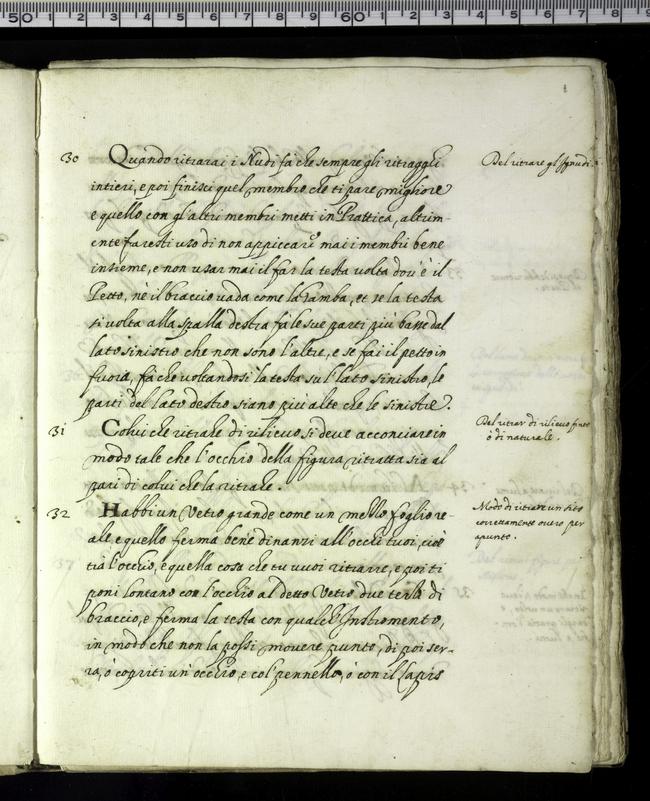 50 1 2 3 4 5 6 7 8 9 60 1 2 3 4 5 6 7 8 9
1
30 Quando ritrarai i Nudi fà che sempre gli ritragghi
Del ritrare gl'Ignudi.
intieri, e poi finisci quel membro che ti pare migliore
e quello con gl'altri membri metti in Prattica, altrim-
ente faresti uso di non appiccare mai i membri bene
insieme, e non usar mai il far la testa volta dov'è il
Petto, nè il braccio vada come la Gamba, et se la testa
si volta alla spalla destra fà le sue parti più basse dal
lato sinistro che non sono l'altre, e se fai il petto in
fuora, fà che voltandosi la testa su l' lato sinistro, le
parti del lato destro siano più alte che le sinistre.
31 Colui che ritrahe di rilievo si deve acconciare in
Del ritrar di rilievo finto
ò di naturale.
modo tale che l'occhio della figura ritratta sia al
pari di colui che la ritrahe.
32 Habbi un Vetro grande come un mezzo foglio re-
Modo di ritrare un sito
correttamente overo per
apunto.
ale, e quello ferma bene dinanzi all'occhi tuoi, cioè
trà l'occhio, e quella cosa che tu vuoi ritrarre, e poi ti
poni lontano con l'occhio al detto Vetro due terzi di
braccio, e ferma la testa con qualche Instromento,
in modo che non la possi movere punto, di poi ser-
ra, ò copriti un'occhio, e col pennello, ò con il Lapis